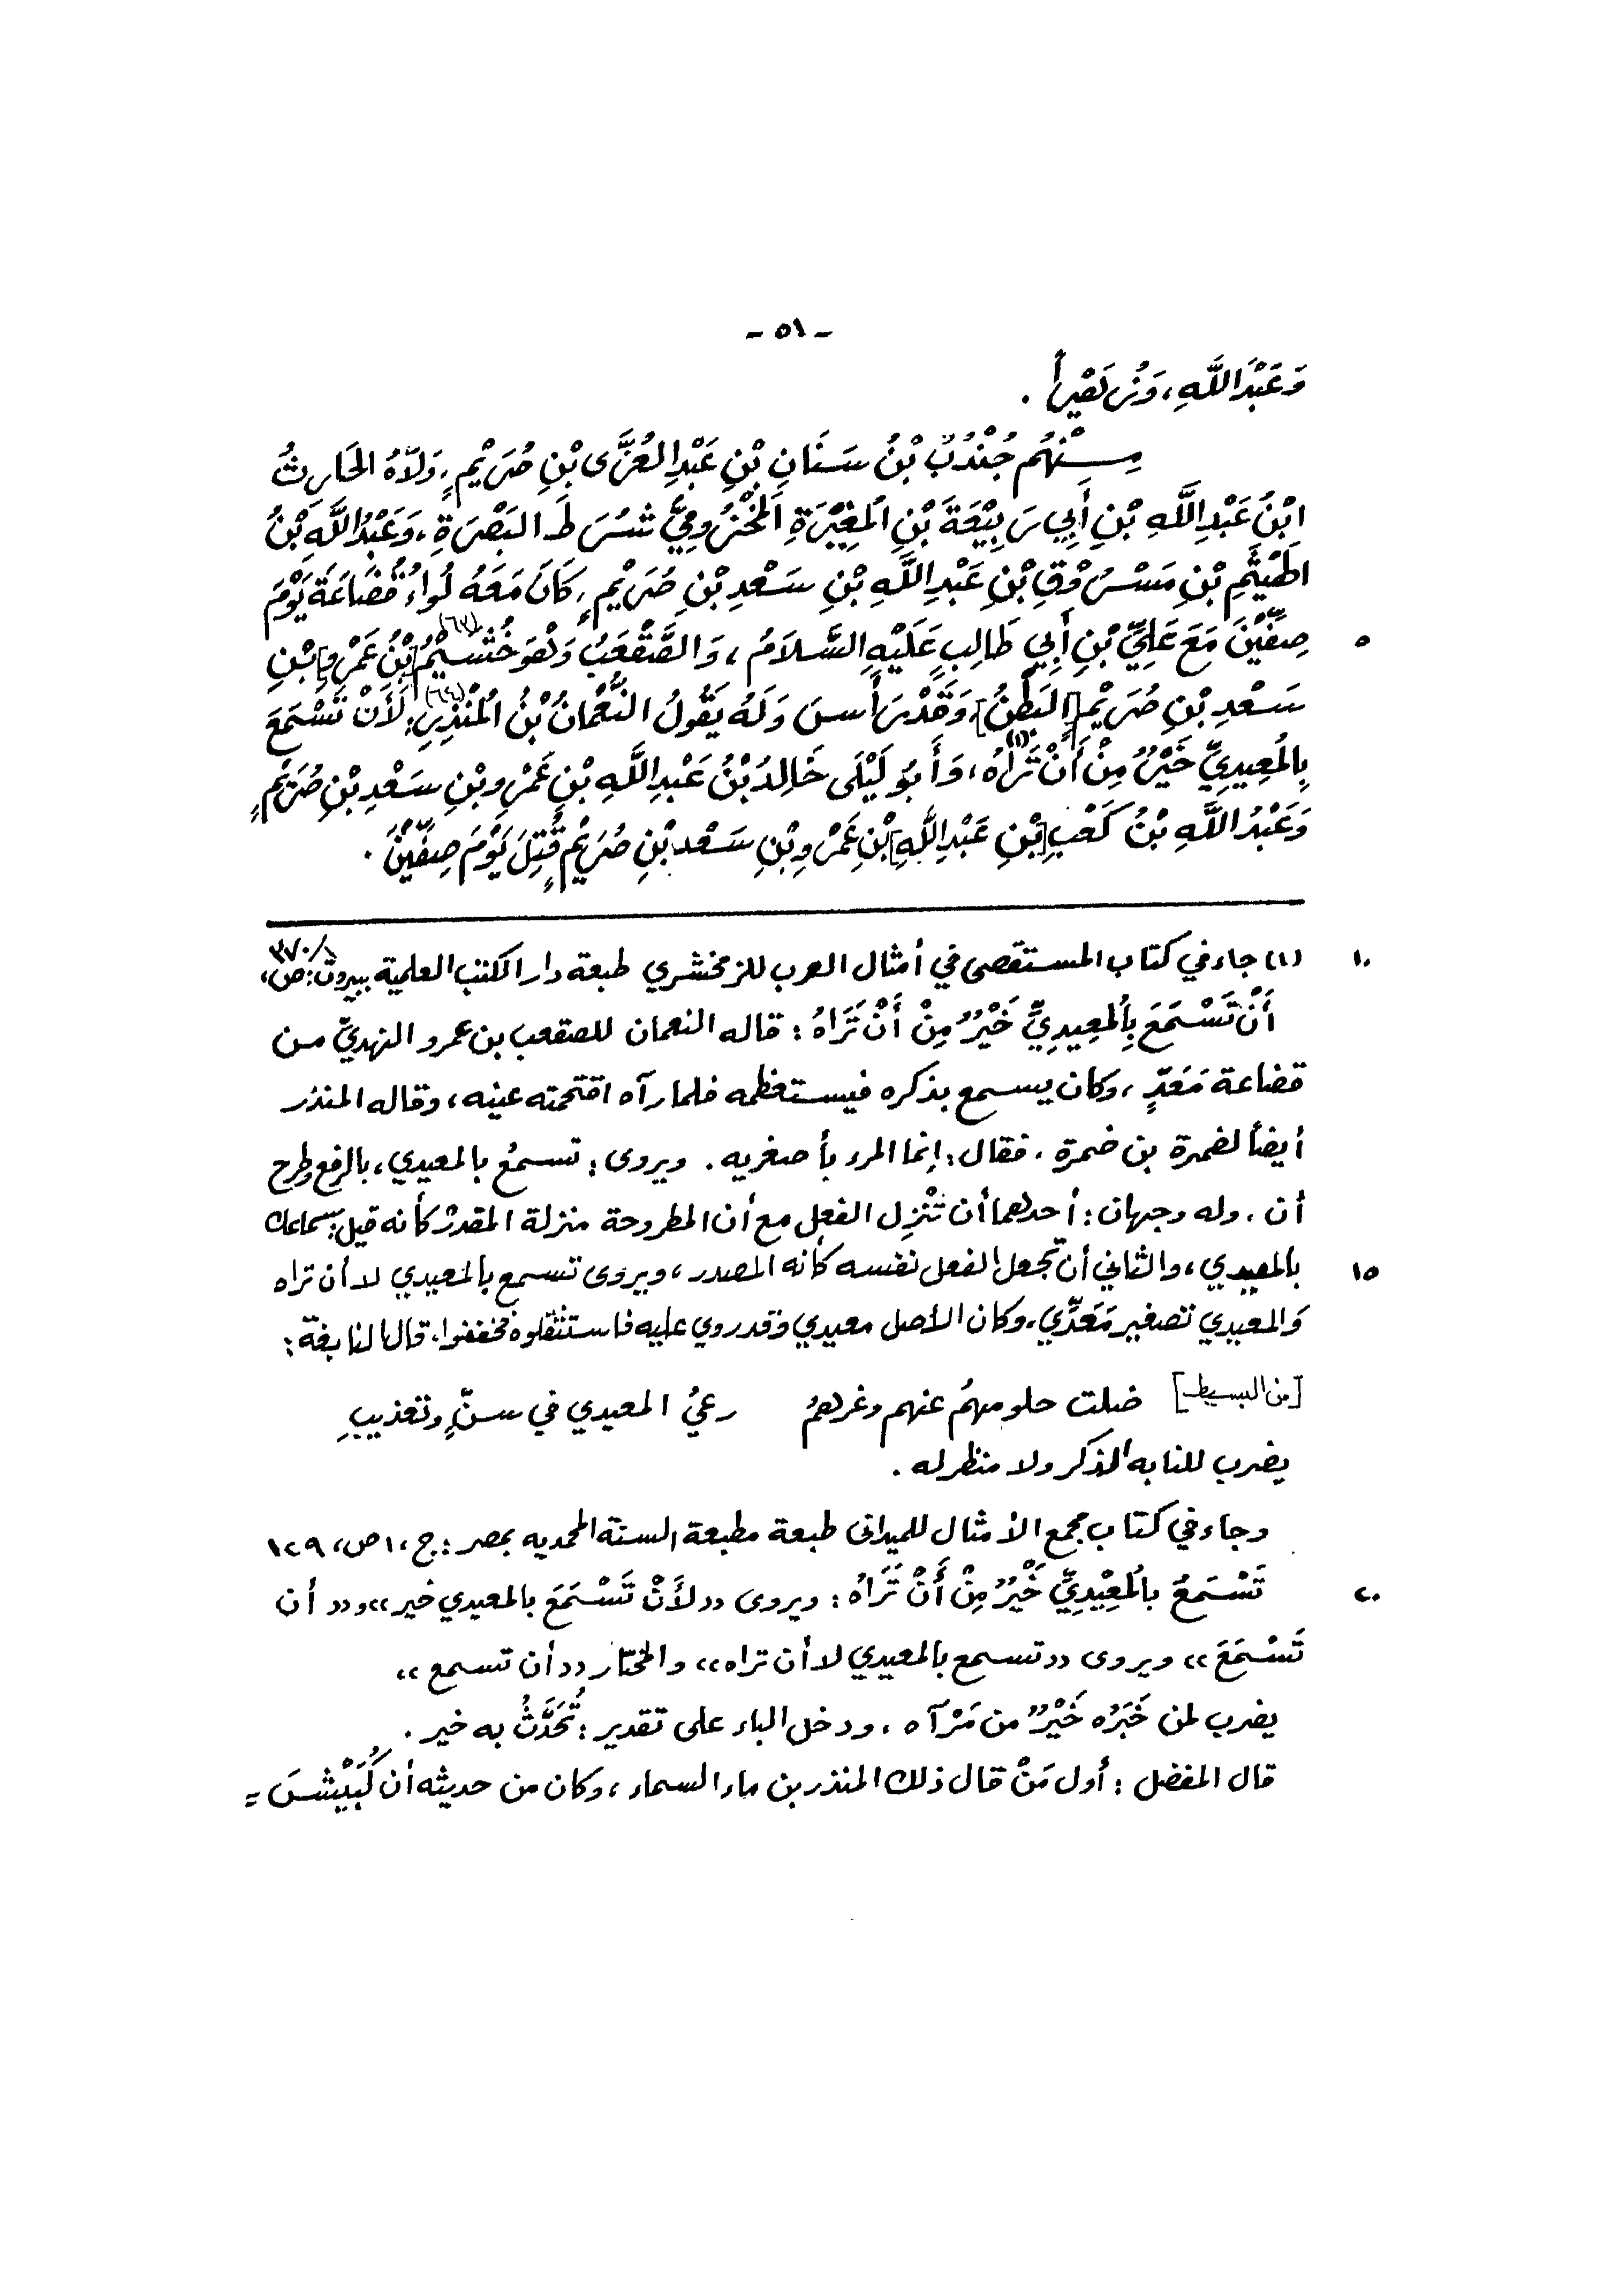 - ٥١ -
وَعَبْدَ اللَّهِ، وَنُصَيْراً .
مِنْهُم جُنْدُبُ بْنُ سَنَانِ بْنِ عَبْدِ العُزَّى بْنِ صُرَيْمٍ، وَلاَّهُ الحَارِثُ
ابْنُ عَبْدِ اللَّهِ بْنِ أَبِي رَبِيْعَةَ بْنِ المُغِيْرَةِ المَخْزُومِيُّ شُرَطَ البَصْرَةِ، وَعَبْدُ اللَّهِ بْنُ
الهَيْثَمِ بْنِ مَسْرُوْقِ بْنِ عَبْدِ اللَّهِ بْنِ سَعْدِ بْنِ صُرَيْمٍ، كَانَ مَعَهُ لُوَاءُ قُضَاعَةَ يَوْمَ
٥ صِفِّيْنَ مَعَ عَلِيِّ بْنِ أَبِي طَالِبٍ عَلَيْهِ السَّلاَمُ، وَالصَّقْعَبُ وَهُوَ خُشَيْمُ(٦٣) [بْنُ عَمْرِو] بْنِ
سَعْدِ بْنِ صُرَيْمٍ [البَطْنُ]، وَقَدْ رَأَسَ وَلَهُ يَقُولُ النُّعْمَانُ بْنُ المُنْذِرِ(٦٤): لَأَنْ تَسْمَعَ
بِالمُعِيدِيِّ خَيْرٌ مِنْ أَنْ تَرَاهُ(١)، وَأَبُو لَيْلَى خَالِدُ بْنُ عَبْدِ اللَّهِ بْنِ عَمْرِو بْنِ سَعْدِ بْنِ صُرَيْمٍ
وَعَبْدُ اللَّهِ بْنُ كَعْبِ [بْنِ عَبْدِ اللَّهِ] بْنِ عَمْرِو بْنِ سَعْد بْنِ صُرَيْمٍ قُتِلَ يَوْمَ صِفِّيْنَ .
١٠ (١) جاء في كتاب المستقصى في أمثال العرب للزمخشري طبعة دار الكتب العلمية ببيروت: ص، ١/٣٧٠
أَنْ تَسْمَعَ بِالمُعِيدِيِّ خَيْرٌ مِنْ أَنْ تَرَاهُ : قاله النعمان للصقعب بن عمرو النهديّ من
قضاعة مَعَدٍّ، وكان يسمع بذكره فيستعظمه فلما رآه اقتحمته عينه، وقاله المنذر
أيضاً لضمرة بن ضمرة، فقال: إنما المرء بأصغريه. ويروى: تسمعُ بالمعيدي، بالرفع وطرح
أن، وله وجهان: أحدهما أن تُنْزِل الفعل مع أن المطروحة منزلة المقدر كأنه قيل: سماعك
١٥ بالمعيدي، والثاني أن تجعل الفعل نفسه كأنه المصدر، ويروى تسمع بالمعيدي لا أن تراه
وَالمعيدي تصغير مَعَدِّي، وكان الأصل معيدي وقد روي عليه فاستثقلوه فخففوا، قال النابغة:
[من البسيط] ضلت حلومهمُ عنهم وغرهمُ رعيُ المعيدي في سنٍّ وتعذيبِ
يضرب للنابه الذكر ولا منظر له .
وجاء في كتاب مجمع الأمثال للميداني طبعة مطبعة السنة المحمديه بمصر: ج، ١ ص، ١٢٩
٢٠ تَسْمَعُ بالمُعِيْدِيِّ خَيْرٌ مِنْ أَنْ تَرَاهُ : ويروى «لأَنْ تَسْمَعَ بالمعيدي خير» و«أن
تَسْمَعَ» ويروى «تسمع بالمعيدي لا أن تراه» والمختار «أن تسمع»
يضرب لمن خَبَرُه خَيْرٌ من مَرْآه، ودخل الباء على تقدير: تُحَدَّثُ به خير .
قال المفضل : أول مَنْ قال ذلك المنذر بن ماء السماء، وكان من حديثه أن كُبَيْشَ =